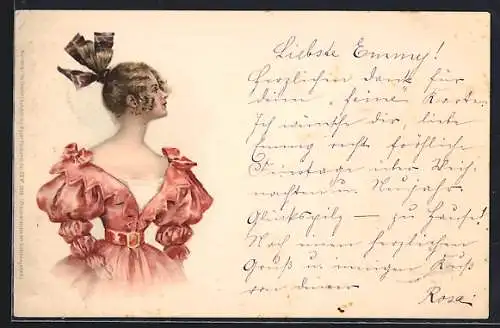 Liebste Emmy!
Herzlichen dank für
deine "feine" Karten.
Ich wünsche dir, liebe
Emmy recht fröhliche
Feiertage über Weih-
nachten u. Neujahr
Glückspilz — zu Hause!
Noch einen herzlichen
Gruß u. innigen Kuß
von deiner
Rosa